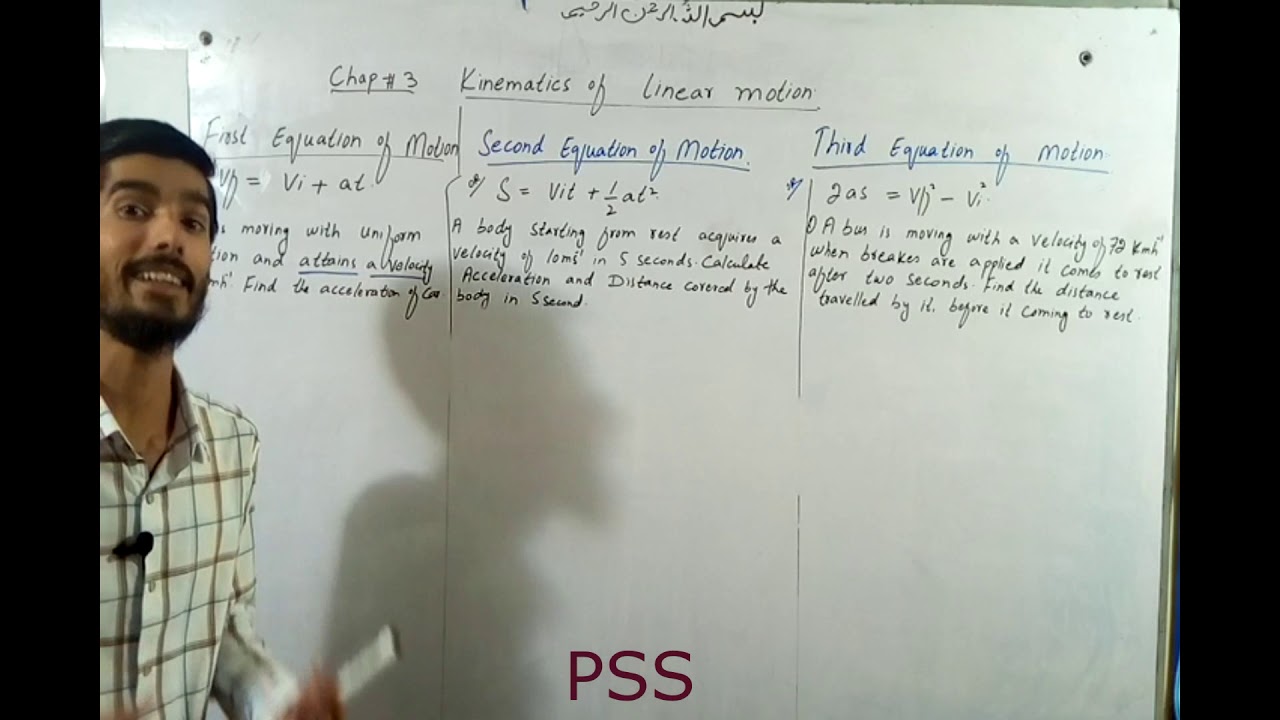 بسم الله الرحمن الرحيم
Chap # 3 Kinematics of linear motion
First Equation of Motion
Vf = Vi + at
moving with uniform
tion and attains a velocity
Find the acceleration of Car.
Second Equation of Motion.
S = Vit + 1/2 at²
A body starting from rest acquires a
velocity of 10ms⁻¹ in 5 seconds. Calculate
Acceleration and Distance covered by the
body in 5 second.
Third Equation of Motion.
2as = Vf² - Vi²
A bus is moving with a velocity of 72 Kmh⁻¹
when breakes are applied it comes to rest
after two seconds. Find the distance
travelled by it. before it coming to rest.
PSS